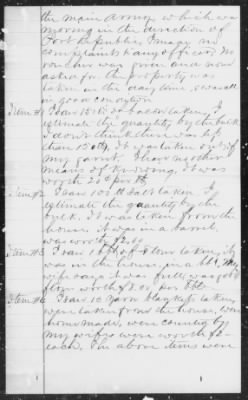 the main army which was
moving in the direction of
Fort I made no
complaint to any officer, no
voucher was given and none
asked for the property was
taken in the day time, & was all
in good condition
Item #1 I saw 15 lbs of bacon taken, I
estimate the quantity by the bulk
I don't think there was less
than 15 lbs. It was taken out of
my garret. I have no other
means of knowing, it was
worth 20¢ per lb
Item #2 I saw 100 lbs Salt taken I
estimate the quantity by the
bulk. It was taken from the
house. It was in a barrel.
was worth $2.00
Item #3 I saw 1 bbl of flour taken, it
was in the house, in a bbl, My
wife says it was full, was good
flour worth $8.00 per bbl
Item #4 I saw 10 yarn blankets taken,
were taken from the house, were
home made, were counted by
my wife, were worth $2
each. The above items were